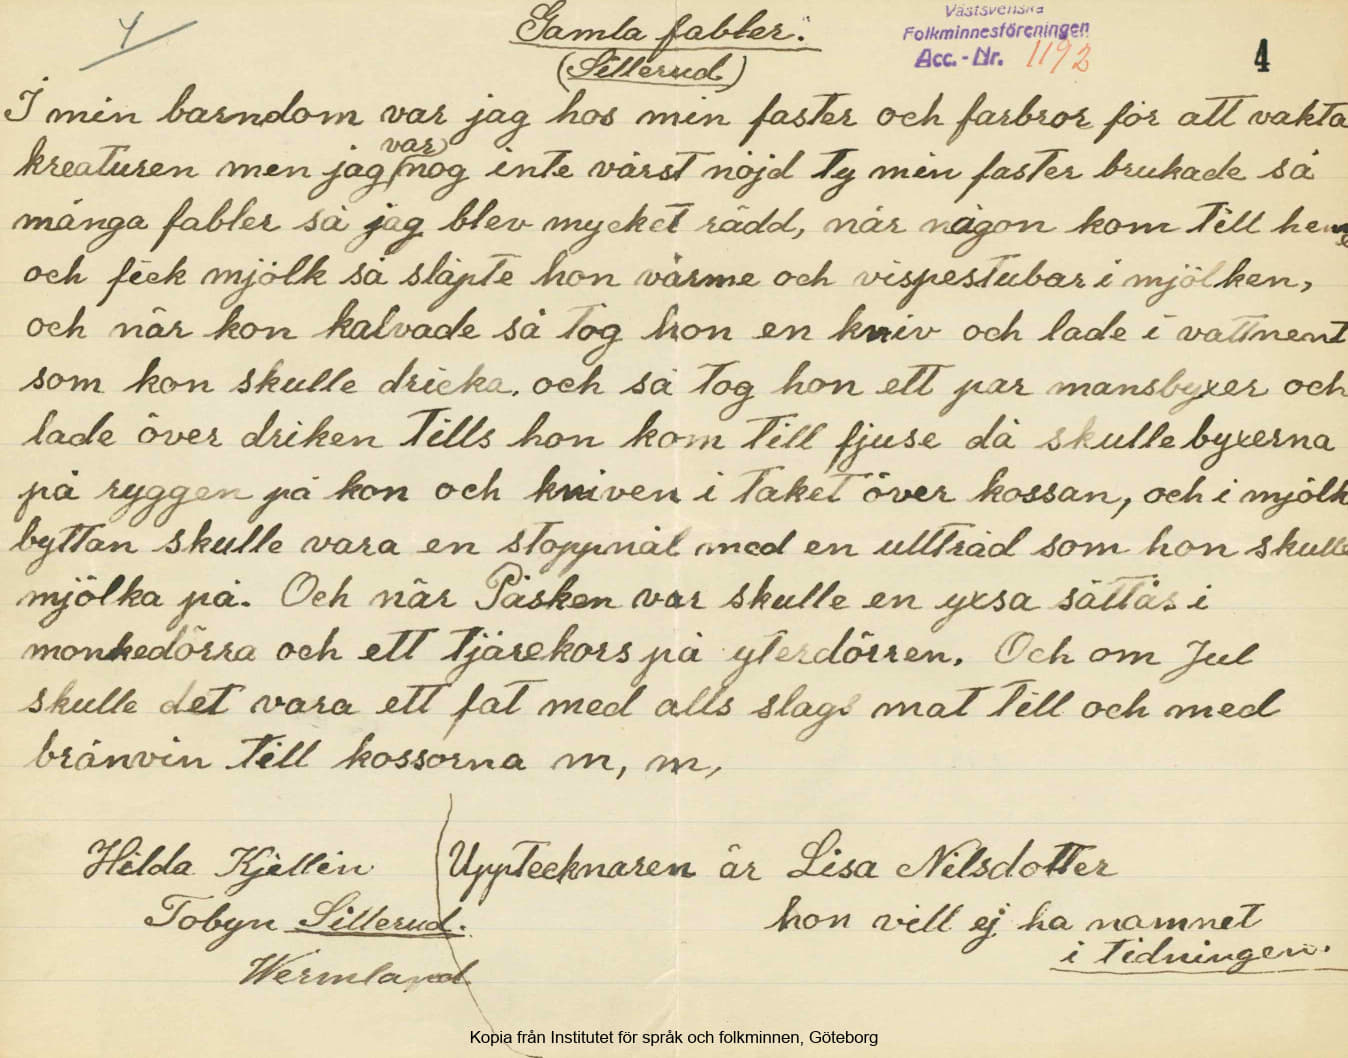 4
Gamla fabler.
(Sillerud)
Västsvenska
Folkminnesföreningen
Acc.-Nr. 1192
4
I min barndom var jag hos min faster och farbror för att vakta
kreaturen men jag (var) nog inte värst nöjd ty min faster brukade så
många fabler så jag blev mycket rädd, när någon kom till henne
och fick mjölk så släpte hon värme och vispestubar i mjölken,
och når kon kalvade så tog hon en kniv och lade i vattnent
som kon skulle dricka. och så tog hon ett par mansbyxer och
lade över driken tills hon kom till fjuse då skulle byxerna
på ryggen på kon och kniven i taket över kossan, och i mjölk
byttan skulle vara en stoppnål med en ulltråd som hon skulle
mjölka på. Och når Påsken var skulle en yxsa sättäs i
monkedörra och ett tjärekors på yterdörren. Och om Jul
skulle det vara ett fat med alls slags mat till och med
brånvin till kossorna m, m,
Hilda Kjellin
Tobyn Sillerud.
Wermland
Upptecknaren är Lisa Nilsdotter
hon vill ej ha namnet
i tidningen.
Kopia från Institutet för språk och folkminnen, Göteborg